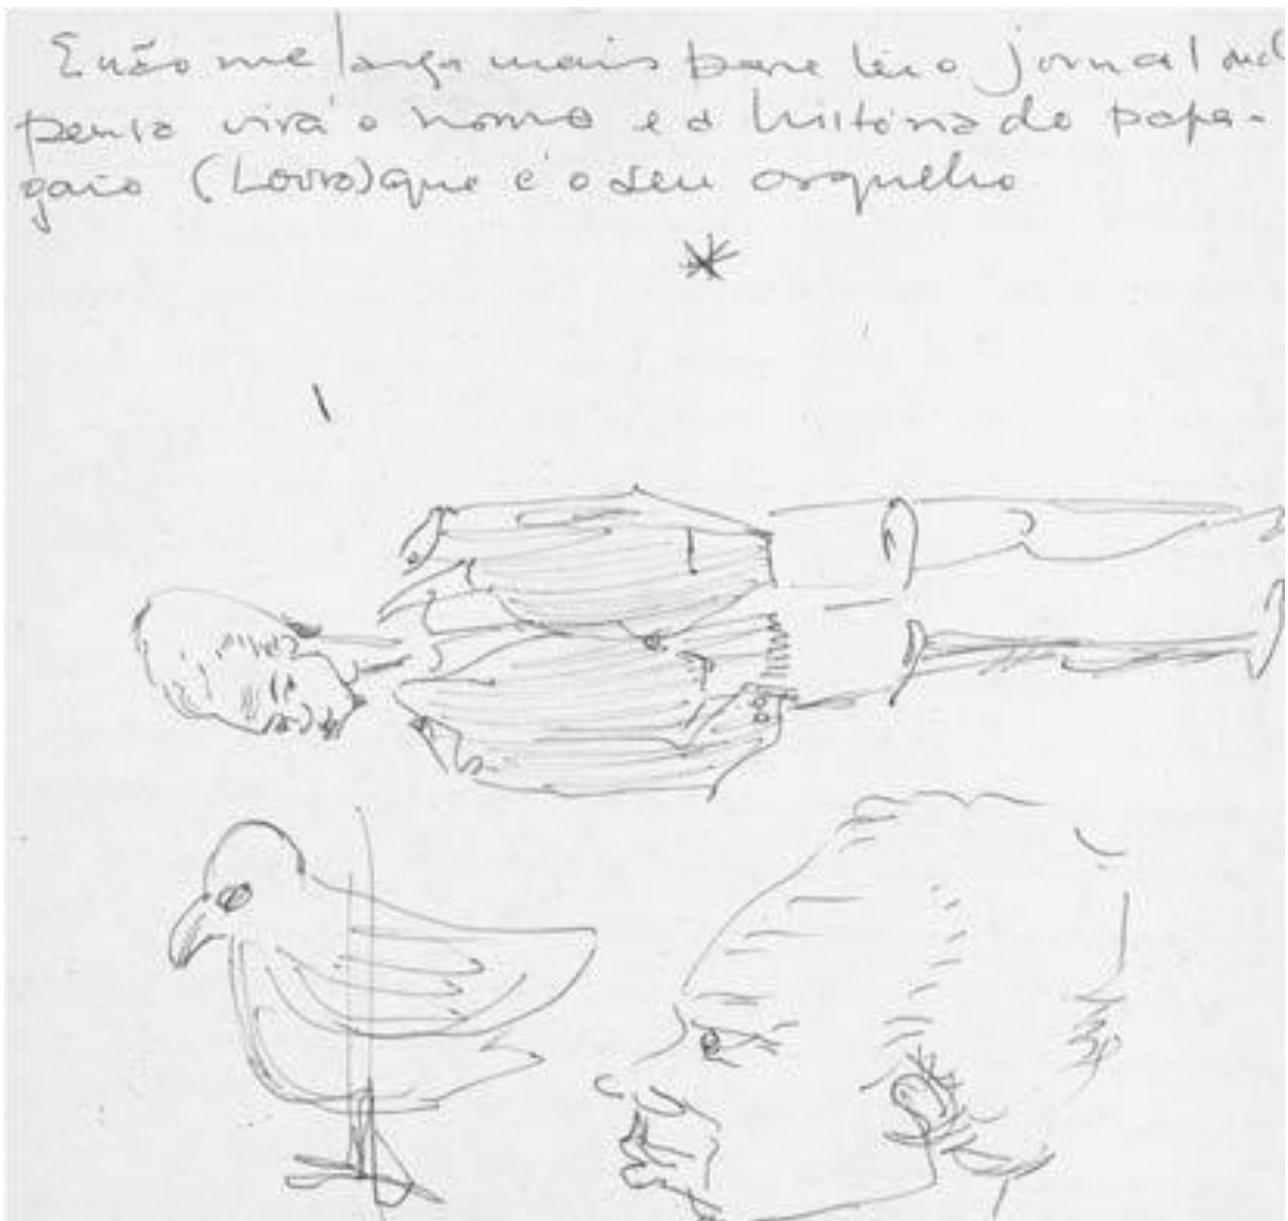 E não me larga mais para ler o jornal onde
pensa virá o nome e a história do papa-
gaio (Louro) que é o seu orgulho